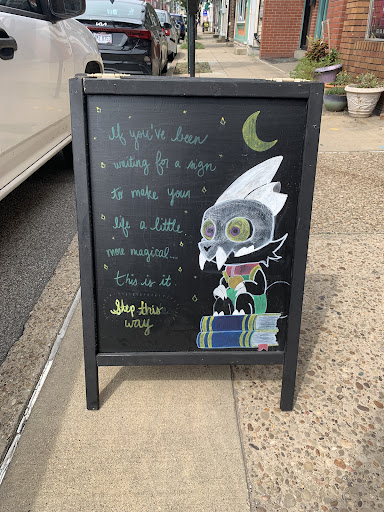 If you've been
waiting for a sign
to make your
life a little
more magical...
this is it
Step this
way